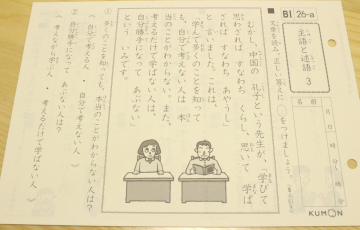 BI 26-a
主語と述語 3
名前
月 日
時 分
KUMON
文章を読み、正しい答えに○をつけましょう。
むかし、中国の 孔子という先生が、「学びて
思わざれば すなわち くらし、思いて 学ば
ざれば すなわち あやうし」
と言いました。これは、
「学んで多くのことを知って
も、自分で考えない人は 本
当のことがわからない。また、
考えるだけで学ばない人は、
自分勝手になって あぶない」
という いみです。
① 多くのことを知っても、本当のことがわからない人は？
自分で考える人 自分で考えない人
② 自分勝手になって あぶない人は？
考えるだけで学ばない人